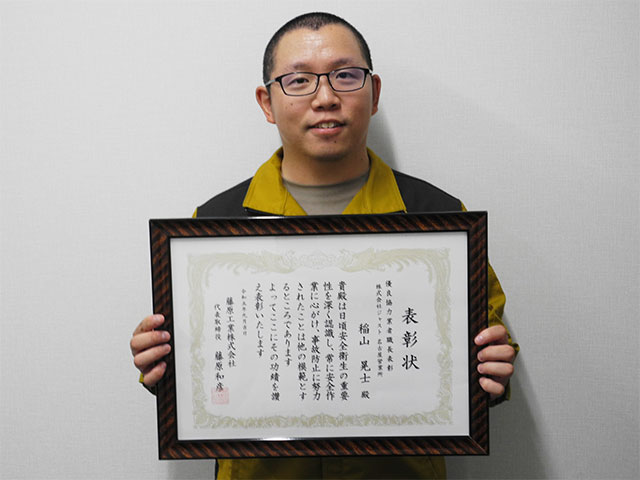 表彰状
優良協力業者職長表彰
株式会社ジャスト 名古屋営業所
稲山 晃士 殿
貴殿は日頃安全衛生の重要
性を深く認識し、常に安全作
業に心がけ、事故防止に努力
されたことは他の模範とす
るところであります
よってここにその功績を讃
え表彰いたします
藤原工業株式会社
代表取締役 藤原和彦